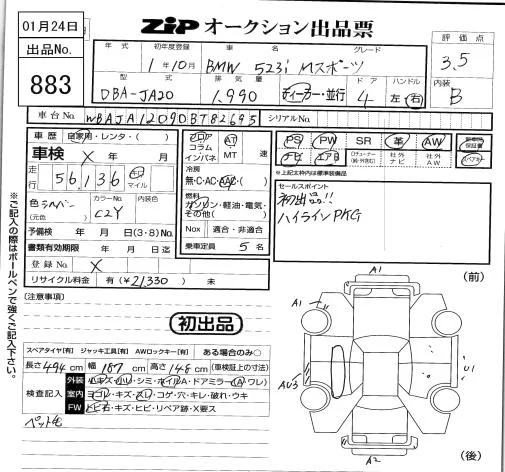 01月24日
出品No.
883
ZIP オークション出品票
評価点
3.5
内装
B
年式 初年度登録 車名 グレード
1年10月 BMW 523i Mスポーツ
型式 排気量 ドア ハンドル
DBA-JA20 1,990 ディーラー・並行 4 左 右
車台No. WBAJA12090BT82695 シリアルNo.
車歴 自家用・レンタ・( )
車検 X 年 月
走行 56,136 キロ マイル
色 カラーNo. 内装色
(元色) C2Y
予備検 年 月 日(3・8)No.
書類有効期限 年 月 日迄
登録No. X
リサイクル料金 有(¥21,330) 未
フロア コラム インパネ AT MT 速
冷房
無・C・AC・AAC・( )
燃料
ガソリン・軽油・電気・その他( )
Nox 適合・非適合
乗車定員 5 名
PS PW SR 革 AW
ナビ エアB 社外ナビ 社外AW
保証書
スペアキー
※上記太枠内は標準装備品
セールスポイント
初出品!!
ハイラインPKG
(注意事項)
初出品
スペアタイヤ[有] ジャッキ工具[有] AWロックキー[有] ある場合のみ○
長さ 494 cm 幅 187 cm 高さ 148 cm (車検証上の寸法)
検査記入
外装 小キズ・小凹・シミ・ホイルA・ドアミラー(A ワレ)
室内 ヨゴレ・キズ・スレ・コゲ・穴・キレ・破れ・ウキ
FW トビ石・キズ・ヒビ・リペア跡・X要ス
ペット毛
※ご記入の際はボールペンで強くご記入下さい。
(前)
A1
A1
AU3
U1
A2
(後)